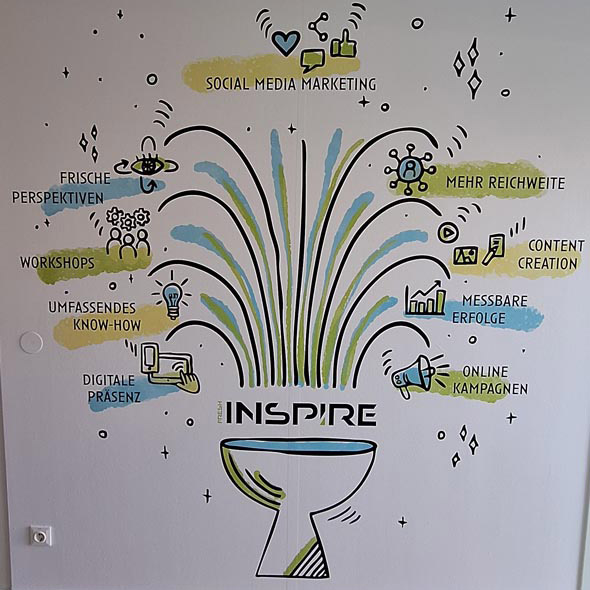 SOCIAL MEDIA MARKETING
FRISCHE
PERSPEKTIVEN
MEHR REICHWEITE
WORKSHOPS
CONTENT
CREATION
UMFASSENDES
KNOW-HOW
MESSBARE
ERFOLGE
DIGITALE
PRÄSENZ
ONLINE
KAMPAGNEN
FRESH
INSPIRE